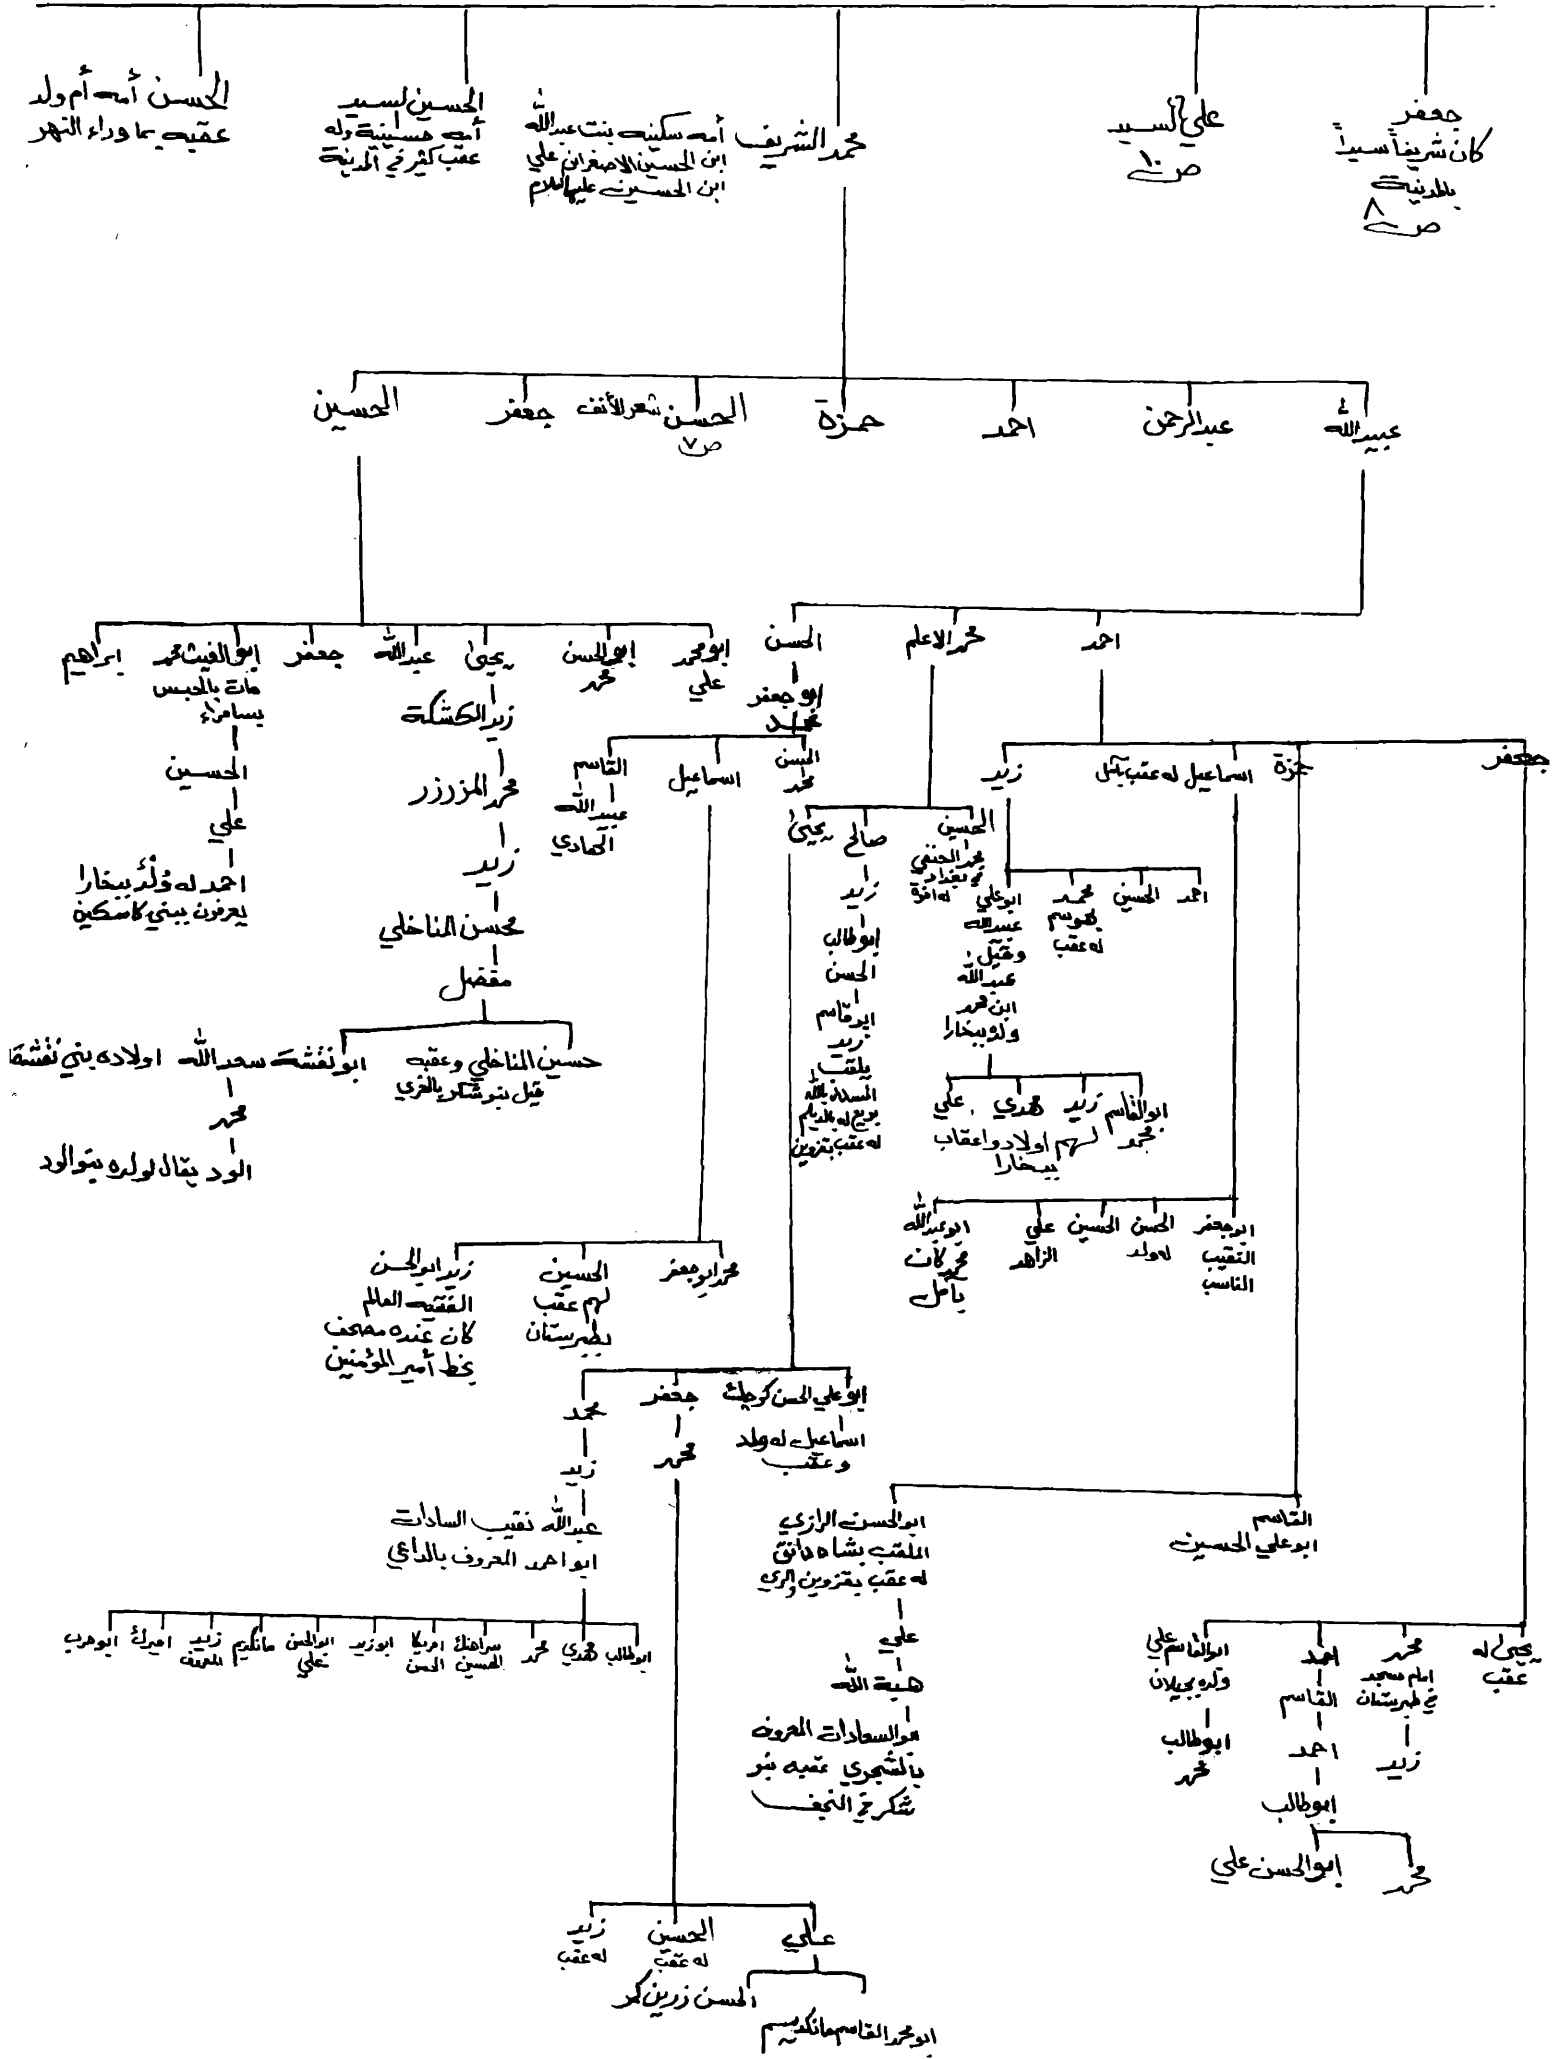 جعفر
كان شريفاً سيداً
بالمدنية
ص ٨
علي السيد
ص ١٠
محمد الشريف
أمه سكينه بنت عبدالله
ابن الحسين الاصغر ابن علي
ابن الحسين عليهم السلام
الحسين لسيد
أمه حسينية وله
عقب كثير في المدينة
الحسن أمه أم ولد
عقبه بما وراء النهر
عبيدالله
عبدالرحمن
احمد
حمزة
الحسن شعر الأنف
ص ٧
جعفر
الحسين
احمد
محمد الاعلم
الحسن
ابو جعفر
محمد
ابو محمد
علي
ابو الحسن
محمد
يحيى
عبدالله
جعفر
ابو الغيث محمد
مات بالحبس
بسامراء
ابراهيم
زيد الكشكة
محمد المزرزر
زيد
محسن المناخلي
مفضل
حسين المناخلي وعقبه
قيل بنو شكر بالغري
ابو نفشة سعدالله اولاده بني نفشة
محمد
الود يقال لولده بنو الود
الحسين
علي
احمد له وُلْدٌ ببخارا
يعرفون ببني كاسكين
جعفر
حمزة
اسماعيل له عقب بآمل
زيد
الحسن
محمد
اسماعيل
القاسم
عبيدالله
الهادي
الحسين
محمد الحنفي
في بغداد
صالح
يحيى
زيد
ابو طالب
الحسن
ابو قاسم
زيد
يلقب
المسدد بالله
بويع له بالديلم
له عقب بقزوين
احمد
الحسين
محمد
بموسم
له عقب
ابو علي
عبيدالله
وقيل
عبدالله
ابن محمد
ولده ببخارا
ابو القاسم
محمد
زيد
مهدي
علي
لهم اولاد واعقاب
ببخارا
ابو جعفر
النقيب
الناسب
الحسن
له ولد
الحسين
علي
الزاهد
ابو عبدالله
محمد كان
بآمل
محمد ابو جعفر
الحسين
لهم عقب
بطبرستان
زيد ابو الحسن
الفقيه العالم
كان عنده مصحف
بخط أمير المؤمنين
ابو علي الحسن كوچك
اسماعيل له ولد
وعقب
جعفر
محمد
محمد
زيد
عبدالله نقيب السادات
ابو احمد المعروف بالداعي
ابو طالب
مهدي
محمد
سراهنك
الحسين
اميركا
الحسن
ابو زيد
ابو الحسن
علي
مانكديم
زيد
اميرك
ابو حرب
القاسم
ابو علي الحسين
ابو الحسن الرازي
الملقب بشاه دانق
له عقب بقزوين والري
علي
هبة الله
ابو السعادات المعروف
بالشجري عقبه بنو
شكر في النجف
يحيى له
عقب
محمد
امام مسجد
في طبرستان
زيد
احمد
القاسم
احمد
ابو طالب
محمد
ابو الحسن علي
ابو القاسم علي
ولده بجيلان
ابو طالب
محمد
علي
الحسين
له عقب
زيد
له عقب
الحسن زرين كمر
ابو محمد القاسم مانكديم